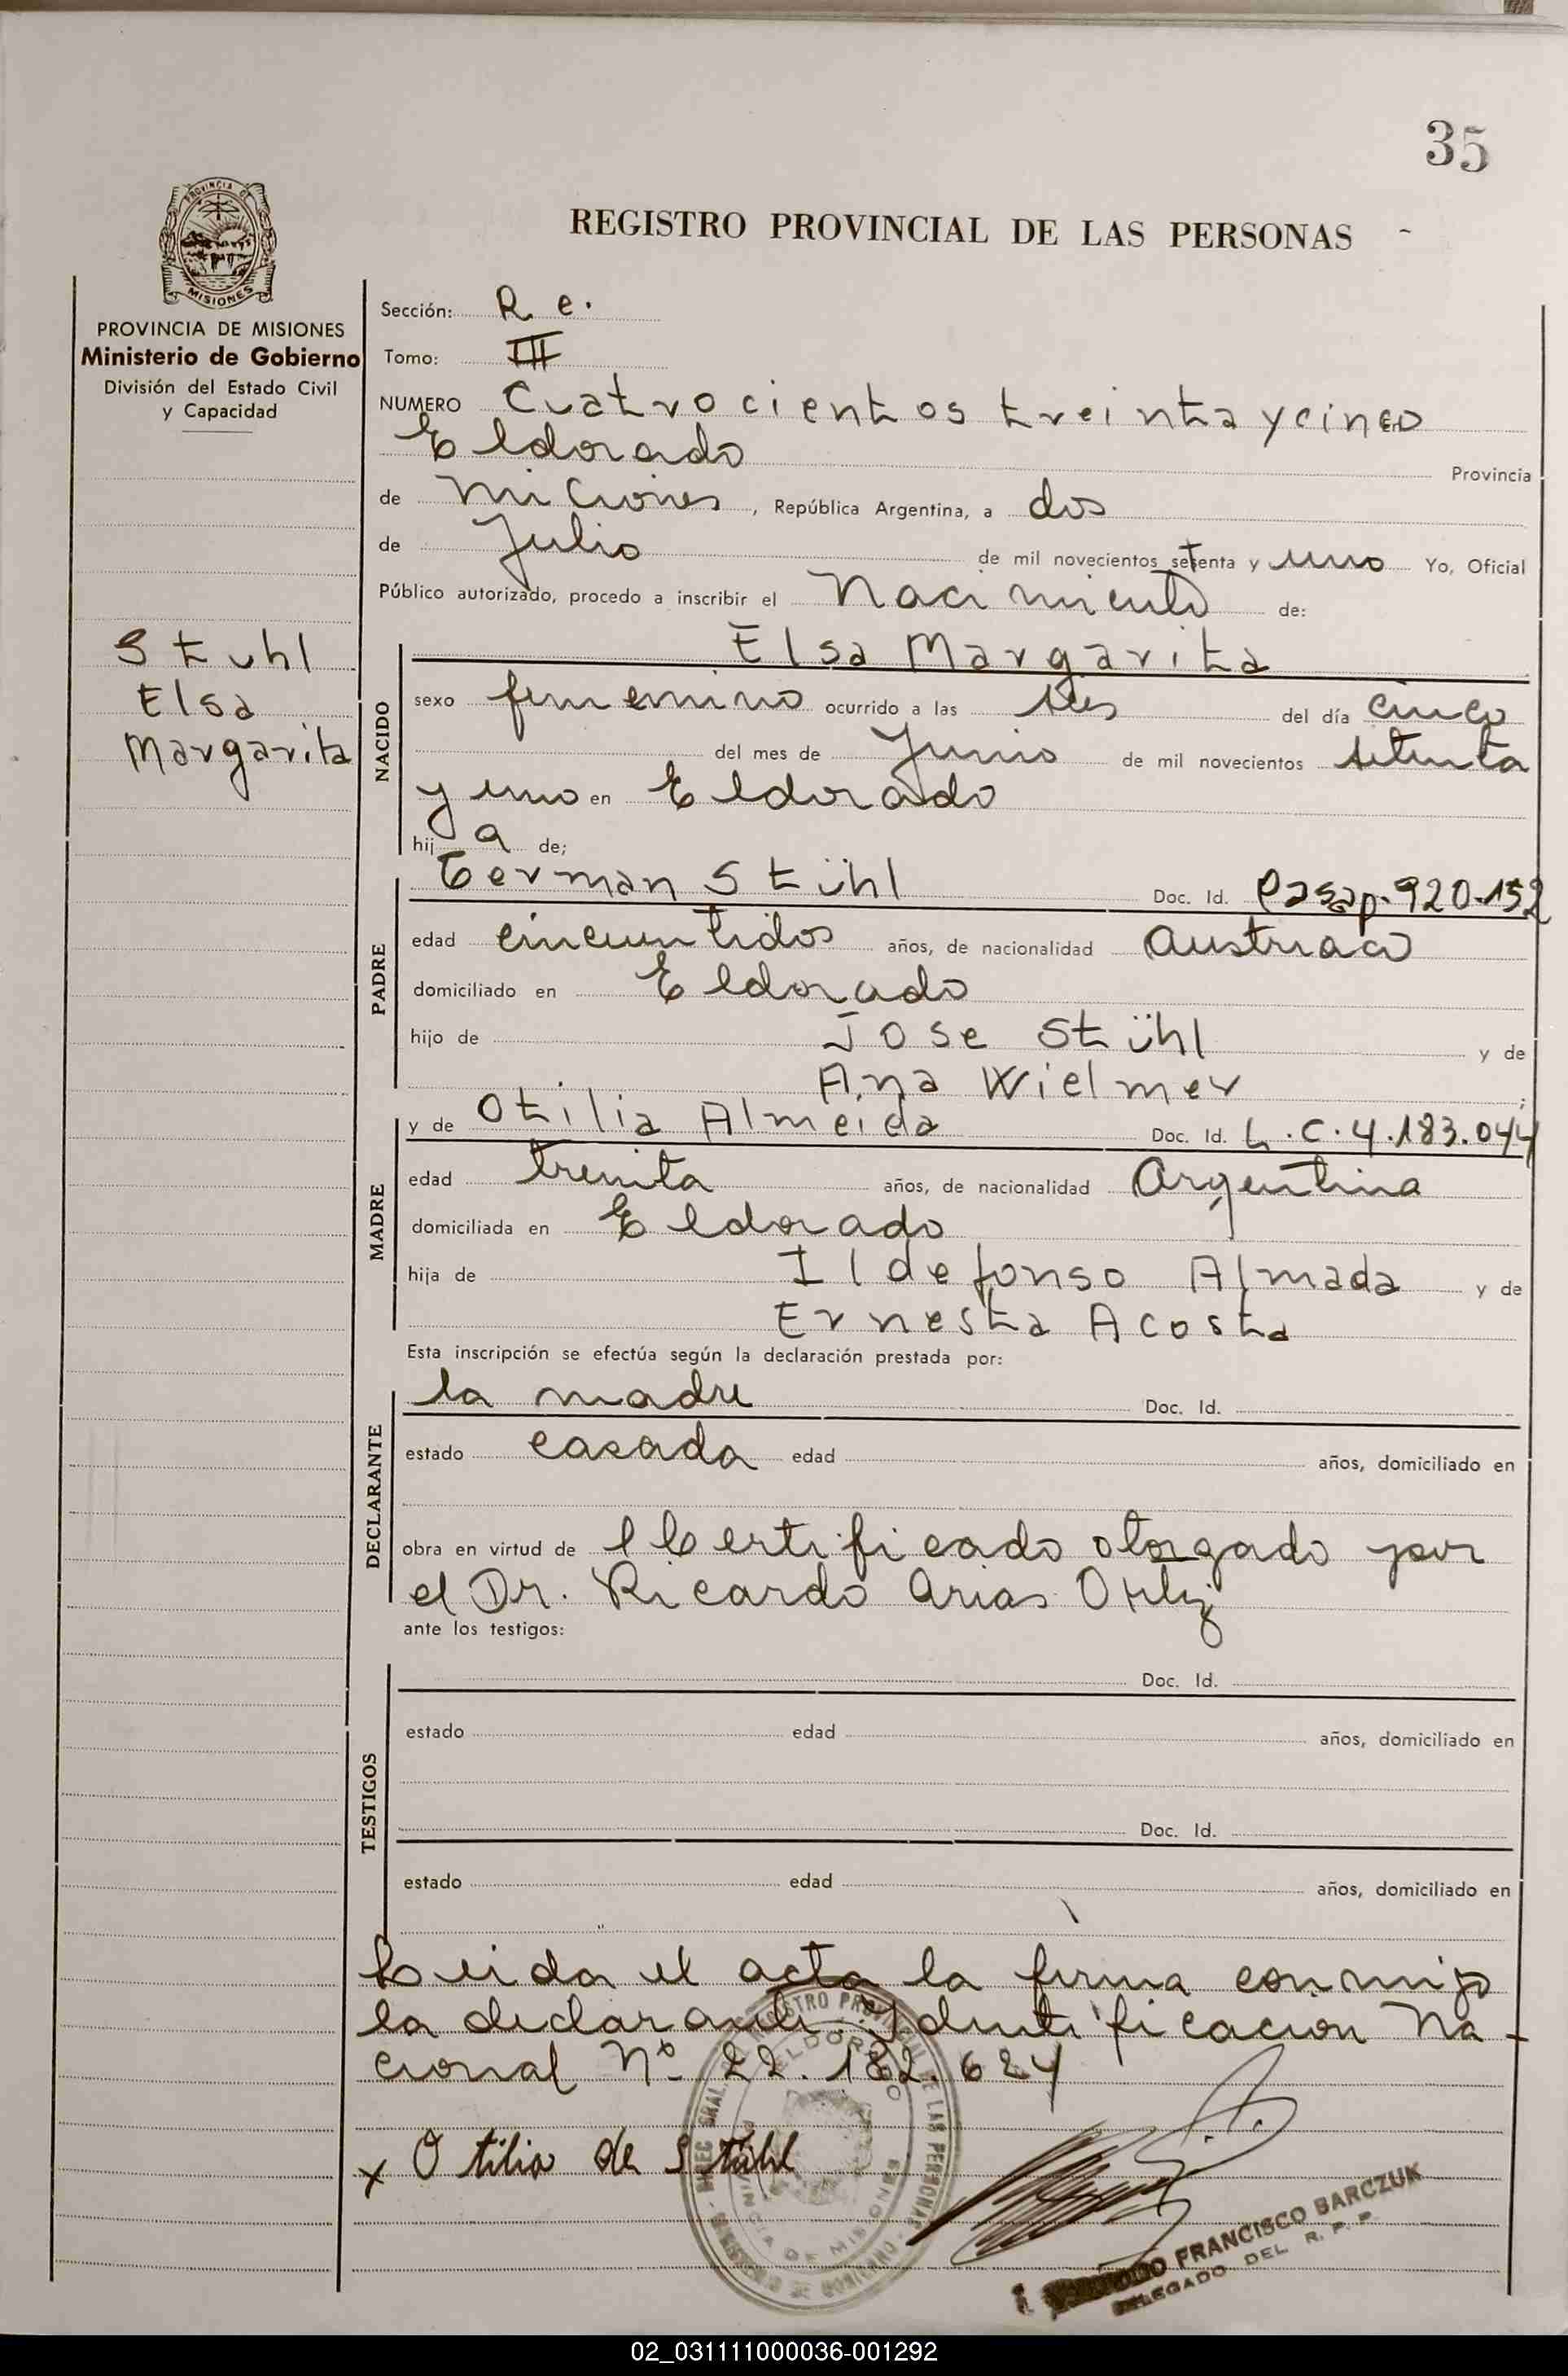 35
REGISTRO PROVINCIAL DE LAS PERSONAS
PROVINCIA DE MISIONES
Ministerio de Gobierno
División del Estado Civil
y Capacidad
Stuhl
Elsa
Margarita
Sección: R e.
Tomo: III
NUMERO Cuatrocientos treinta y cinco
Eldorado Provincia
de Miciones, República Argentina, a dos
de Julio de mil novecientos setenta y uno Yo, Oficial
Público autorizado, procedo a inscribir el Nacimiento de:
NACIDO
Elsa Margarita
sexo femenino ocurrido a las del día cinco
del mes de Junio de mil novecientos setenta
y uno en Eldorado
hija de;
PADRE
German Stühl Doc. Id. Pasap. 920.152
edad cincuentidos años, de nacionalidad Austriaco
domiciliado en Eldorado
hijo de Jose Stühl y de
Ana Wielmer;
MADRE
y de Otilia Almeida Doc. Id. L.C.4.183.044
edad treinta años, de nacionalidad Argentina
domiciliada en Eldorado
hija de Ildefonso Almada y de
Ernesta Acosta
Esta inscripción se efectúa según la declaración prestada por:
DECLARANTE
la madre Doc. Id.
estado casada edad años, domiciliado en
obra en virtud de l Certificado otorgado por
el Dr. Ricardo Arias Ortiz
ante los testigos:
TESTIGOS
Doc. Id.
estado edad años, domiciliado en
Doc. Id.
estado edad años, domiciliado en
Leida el acta la firma conmigo
la declarante. Identificación Na-
cional Nº 22.182.624
x Otilia de Stühl
FRANCISCO BARCZUK
DELEGADO DEL R. P. P.
02_031111000036-001292